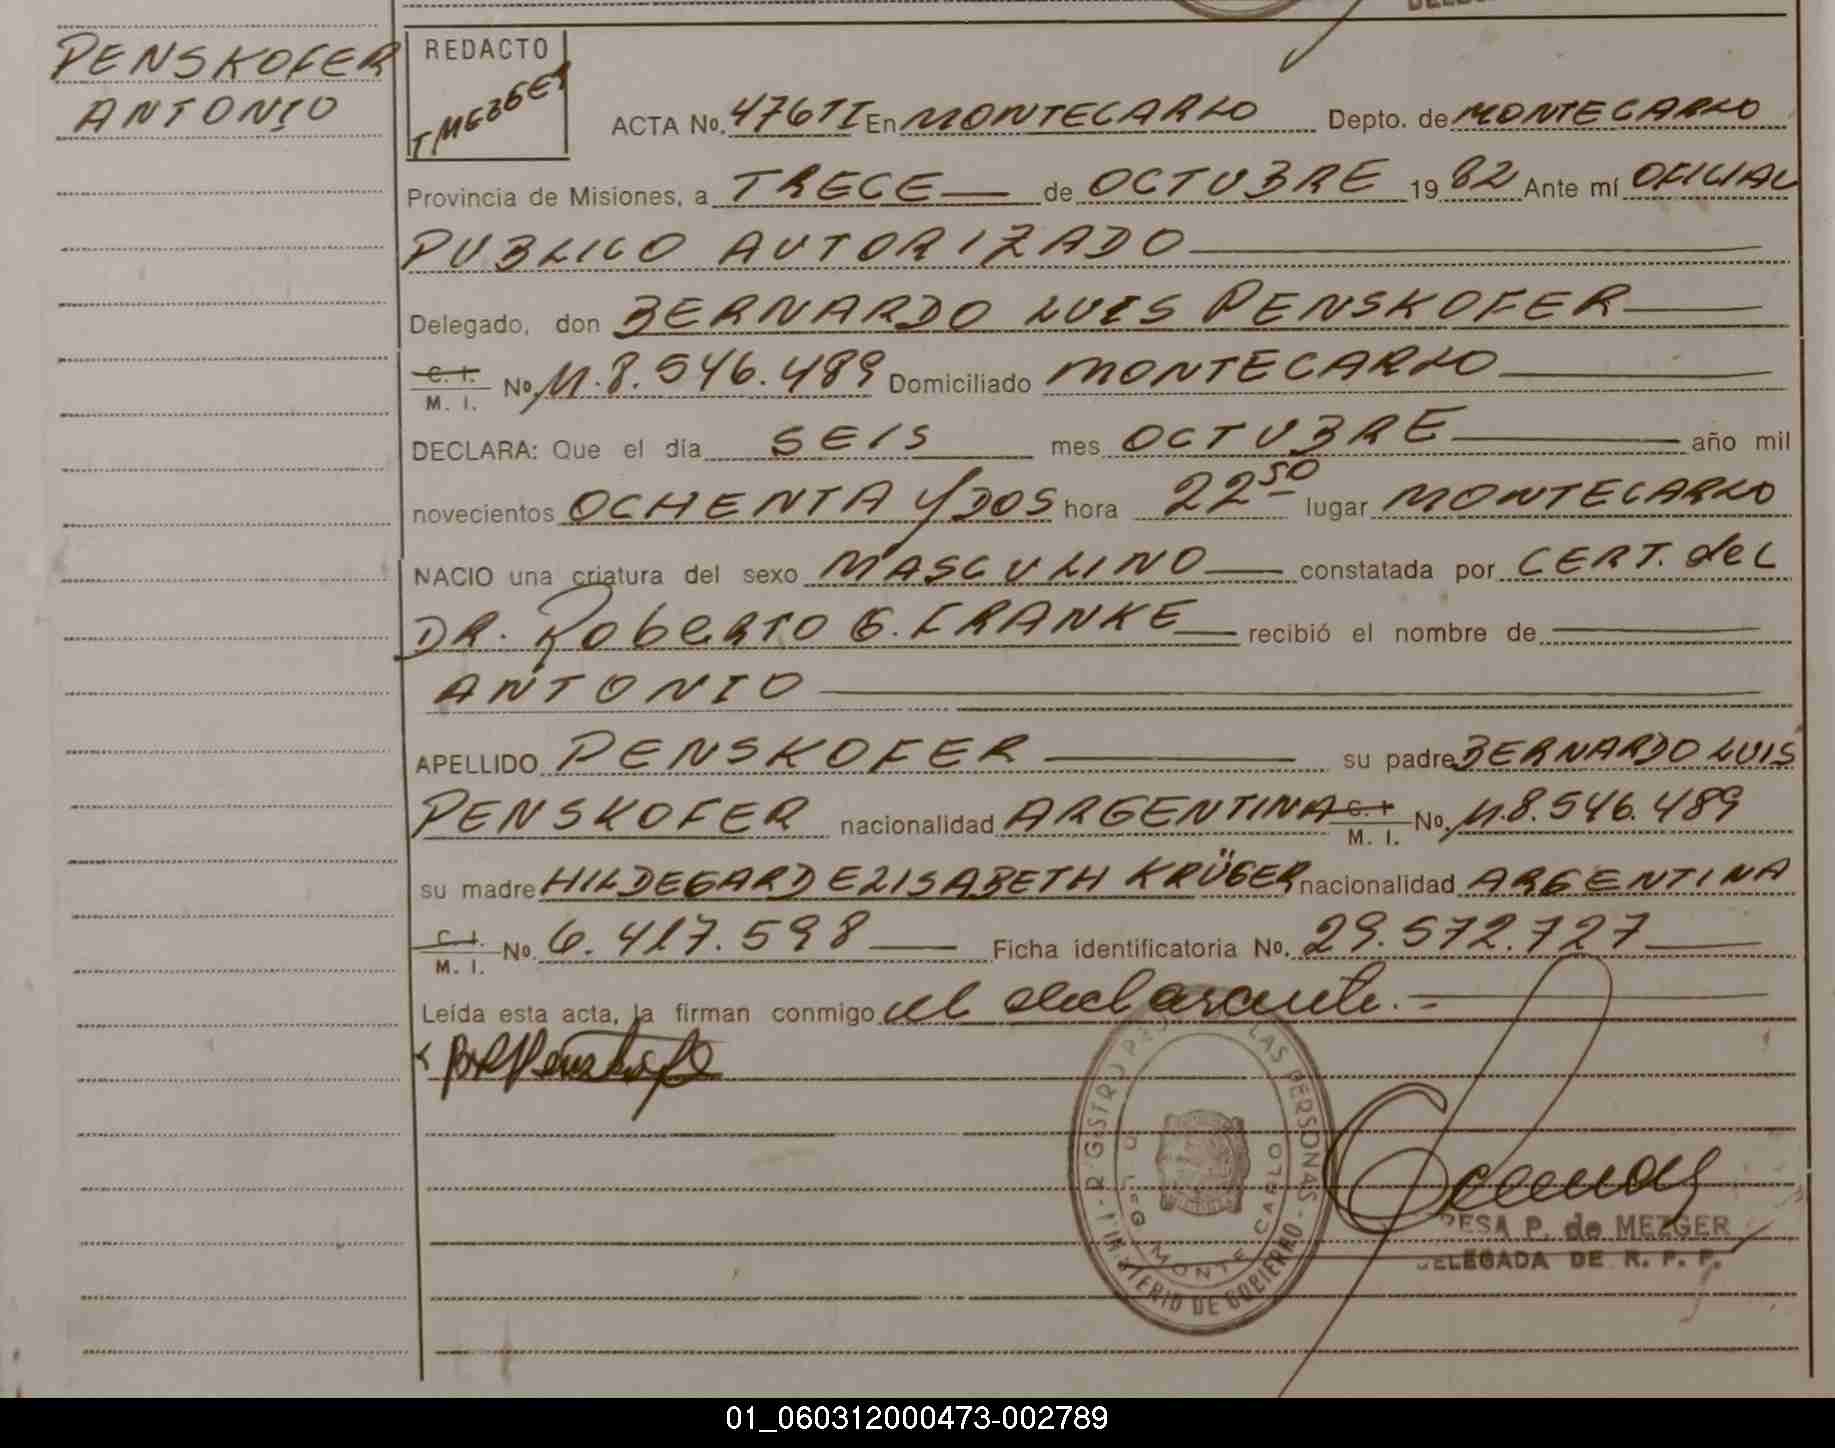 PENSKOFER
ANTONIO
REDACTO
TMEZGER
ACTA No. 476TI En MONTECARLO Depto. de MONTECARLO
Provincia de Misiones, a TRECE de OCTUBRE 19 82 Ante mí OFICIAL
PUBLICO AUTORIZADO
Delegado, don BERNARDO LUIS PENSKOFER
C. I.
M. I. No. M. 8.546.489 Domiciliado MONTECARLO
DECLARA: Que el día SEIS mes OCTUBRE año mil
novecientos OCHENTA Y DOS hora 22 50 lugar MONTECARLO
NACIO una criatura del sexo MASCULINO constatada por CERT. del
DR. Roberto G. FRANKE recibió el nombre de
ANTONIO
APELLIDO PENSKOFER su padre BERNARDO LUIS
PENSKOFER nacionalidad ARGENTINA C. I. M. I. No. M. 8.546.489
su madre HILDEGARD ELISABETH KRÜGER nacionalidad ARGENTINA
C. I.
M. I. No. 6.417.598 Ficha identificatoria No. 29.572.727
Leída esta acta, la firman conmigo el declarante.
LAS PERSONAS
MONTE CARLO
DE GOBIERNO
P. de MEZGER
DELEGADA DE R. P. P.
01_060312000473-002789